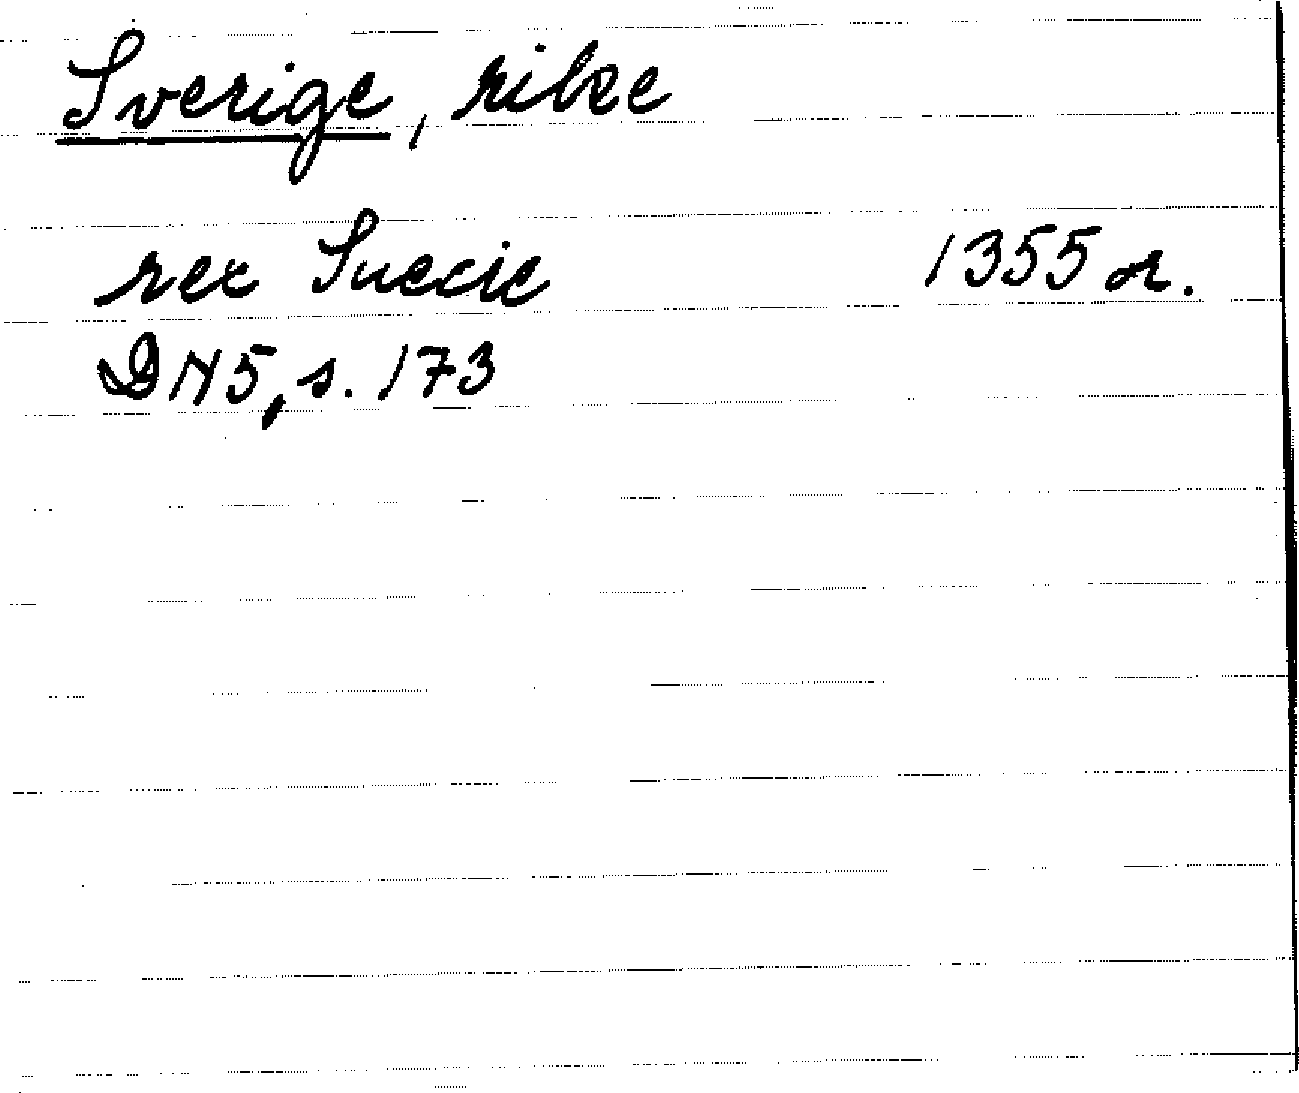 Sverige, rike
rex Suecie 1355 or.
DN5, s. 173